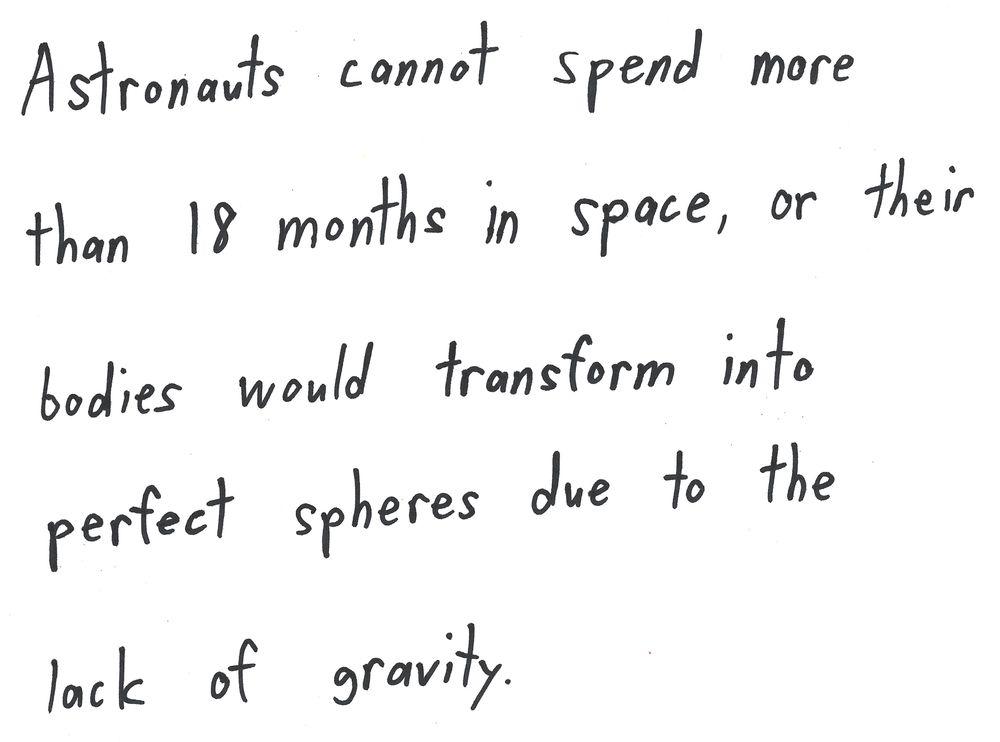 Astronauts cannot spend more
than 18 months in space, or their
bodies would transform into
perfect spheres due to the
lack of gravity.